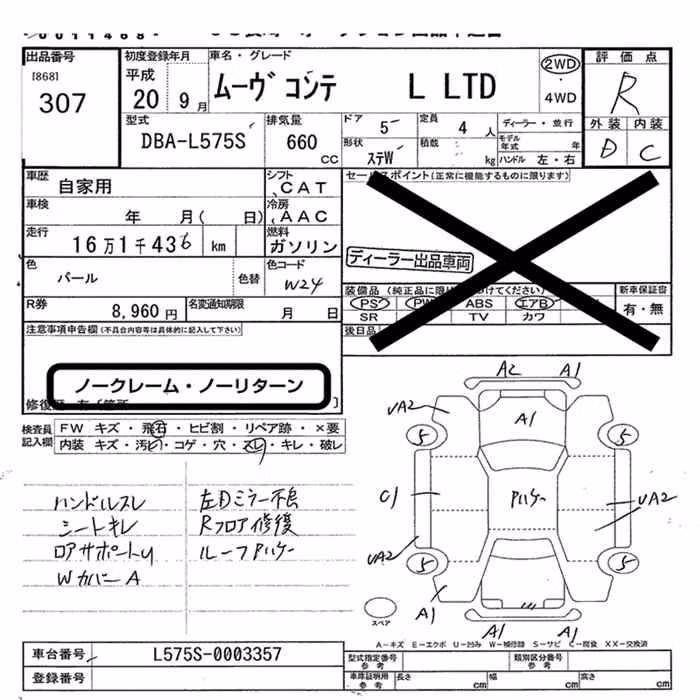 0011469
出品番号 初度登録年月 車名・グレード 2WD・4WD 評価点
[868] 307 平成 20 9月 ムーヴ コンテ L LTD R
型式 DBA-L575S 排気量 660 CC ドア 5 定員 4 人 ディーラー・並行 外装 D 内装 C
形状 ステW 積載 kg モデル年式 年 ハンドル 左・右
車歴 自家用 シフト CAT セールスポイント(正常に機能するものに限ります)
車検 年 月( 日) 冷房 AAC
走行 16万1千436 km 燃料 ガソリン ディーラー出品車両
色 パール 色替 色コード W24
装備品 (純正品に限り 付けてください) 新車保証書
PS PW ABS エアB 有・無
R券 8,960円 名変通知期限 月 日 SR TV カワ
注意事項申告欄(不具合内容等は具体的に記入して下さい) 後日品
ノークレーム・ノーリターン
修復歴
検査員記入欄 FW キズ・飛石・ヒビ割・リペア跡・×要
内装 キズ・汚い・コゲ・穴・スレ・キレ・破レ
ハンドルスレ 左Dミラー不良
シートキレ Rフロア修復
ロアサポートU ルーフアハゲー
WカバーA
A2 A1
UA2 A1
5 5
C1 アハゲー UA2
UA2
5 5
A1
A1 A1
スペア
A-キズ E-エクボ U-凹み W-補修跡 S-サビ C-腐食 XX-交換済
車台番号 L575S-0003357 型式指定番号 参考 類別区分番号 参考
登録番号 車庫証明用 参考 長さ cm 幅 cm 高さ cm